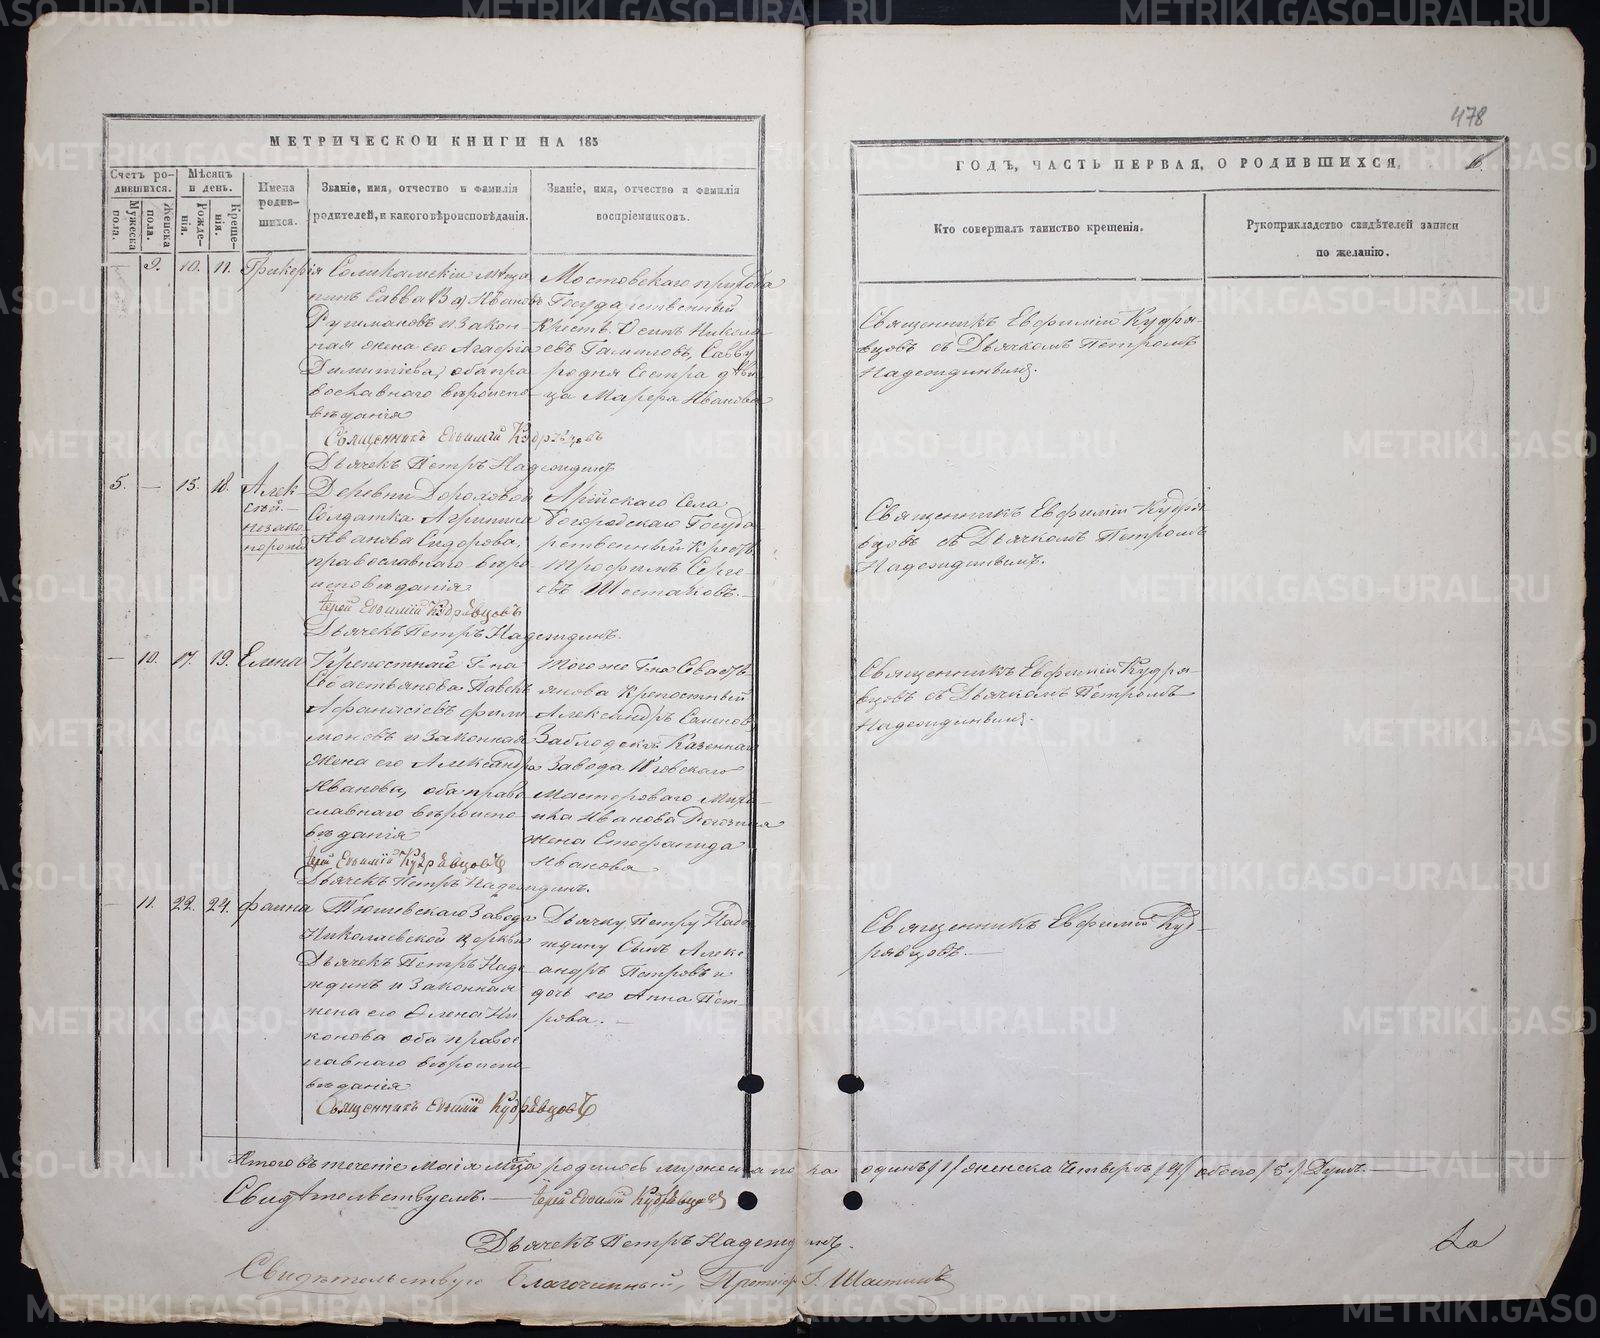 478
МЕТРИЧЕСКОЙ КНИГИ НА 185
ГОДЪ, ЧАСТЬ ПЕРВАЯ, О РОДИВШИХСЯ.
16.
Счетъ родившихся.
Мужеска пола.
Женска пола.
Мѣсяцъ и день.
Рожденія.
Крещенія.
Имена родившихся.
Званіе, имя, отчество и фамилія
родителей, и какого вѣроисповѣданія.
Званіе, имя, отчество и фамилія
воспріемниковъ.
Кто совершалъ таинство крещенія.
Рукоприкладство свидѣтелей записи
по желанію.
— 9. 10. 11. Гликерія
Соликамскій мѣща
нинъ Савва Ивановъ
и закон-
ная жена его Агафія
Димитіева, оба пра
вославнаго вѣроиспо
вѣданія
Священникъ Евѳимій Кудрявцовъ
Дьячекъ Петръ Надеждинъ
Мостовскаго прихода
Государственный
Крест. Осипъ Никола
евъ Савву
родная Сестра дѣви
ца Марѳа Иванова
Священникъ Евфимій Кудря-
вцовъ съ Дьячкомъ Петромъ
Надеждинымъ.
5. — 15. 18. Алек
сѣй.
незако
норожд
Деревни Дороховой
Солдатка Агрипина
Иванова Сидорова,
православнаго вѣро
исповѣданія
Іерей Евѳимій Кудрявцовъ
Дьячекъ Петръ Надеждинъ.
Аряжскаго Села
Богородскаго Госуда
рственный Крест.
Трофимъ Серге-
евъ Шестаковъ.
Священникъ Евфимій Кудря
вцовъ съ Дьячкомъ Петромъ
Надеждинымъ.
— 10. 17. 19. Елена
Крепостный Г-на
Севастьянова Павелъ
Афанасіевъ Фили
моновъ и законная
жена его Александра
Иванова, оба право
славнаго вѣроиспо
вѣданія
Іерей Евѳимій Кудрявцовъ
Дьячекъ Петръ Надеждинъ.
Тогоже Г-на Севасть
янова крепостный
Александръ Семенов
Казеннаго
Завода Юговскаго
Мастероваго
Иванова
жена Стефанида
Иванова
Священникъ Евфимій Кудря-
вцовъ съ Дьячкомъ Петромъ
Надеждинымъ.
— 11. 22. 24. Фаина
Тюшевскаго Завода
Николаевской церкви
Дьячекъ Петръ Наде
ждинъ и законная
жена его Елена Ни
конова оба правос
лавнаго вѣроиспо
вѣданія
Священникъ Евѳимій Кудрявцовъ
Дьячку Петру Наде
ждину Сынъ Алекс
андръ Петровъ и
дочь его Анна Пет
рова. —
Священникъ Евфимій Куд
рявцовъ. —
Итого въ теченіе Маія М-ца родилось мужеска пола одинъ /1/ женска четыре /4/ обоего /5/ Душъ. —
Свидѣтельствуемъ. — Іерей Евѳимій Кудрявцовъ
Дьячекъ Петръ Надеждинъ.
Свидѣтельствую Благочинный, Протоіер. І. Шастинъ
METRIKI.GASO-URAL.RU